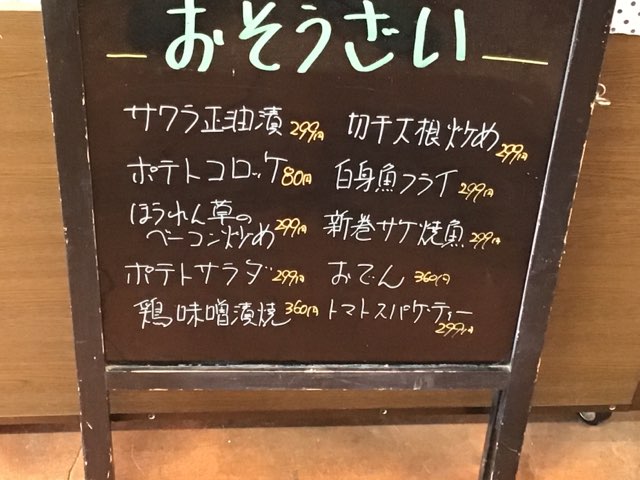 おそうざい
サワラ正油漬 299円
ポテトコロッケ 80円
ほうれん草の
ベーコン炒め 299円
ポテトサラダ 299円
鶏味噌漬焼 360円
切干大根炒め 299円
白身魚フライ 299円
新巻サケ焼魚 299円
おでん 360円
トマトスパゲティー
299円